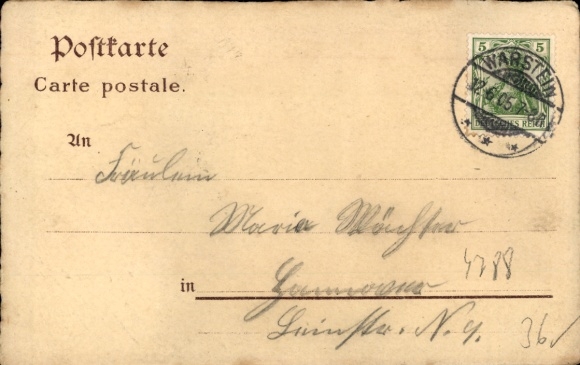 Postkarte
Carte postale.
5 5
DEUTSCHES REICH
WARSTEIN
6.05
An
Fräulein
Maria Wächter
4288
in Hannover
N. 9.
36